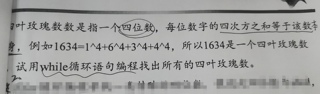 四叶玫瑰数数是指一个四位数，每位数字的四次方之和等于该数
，例如1634=1^4+6^4+3^4+4^4，所以1634是一个四叶玫瑰数
试用while循环语句编程找出所有的四叶玫瑰数。